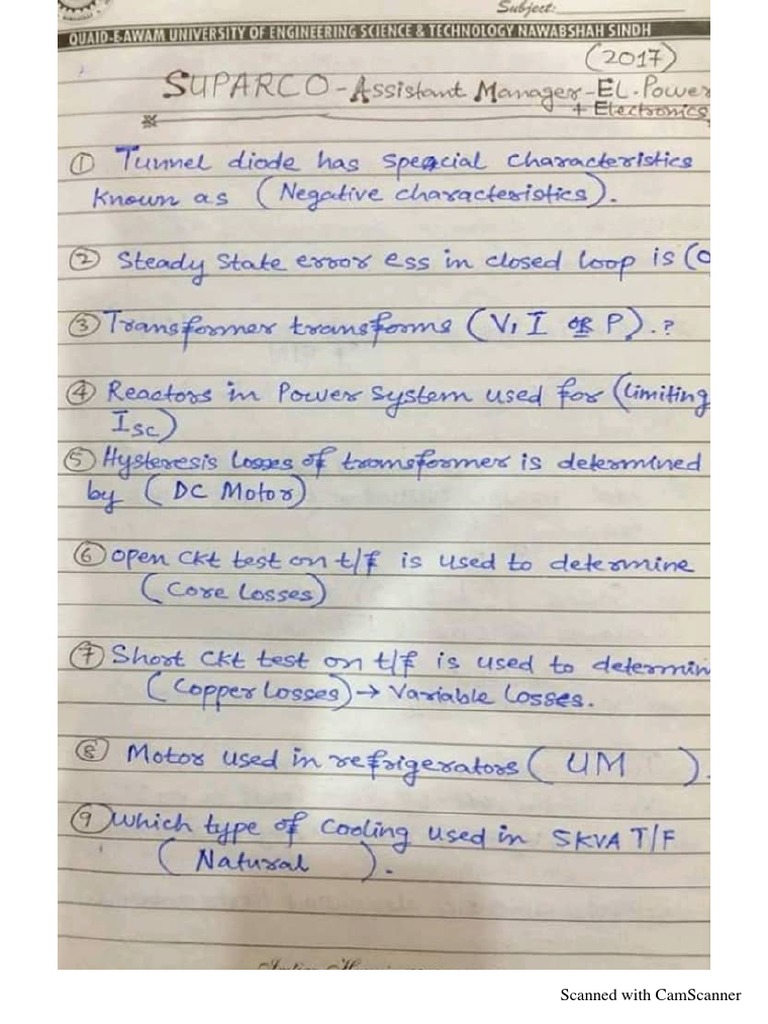 Subject:
QUAID-E-AWAM UNIVERSITY OF ENGINEERING SCIENCE & TECHNOLOGY NAWABSHAH SINDH
(2017)
SUPARCO - Assistant Manager - EL. Power
+ Electronics
① Tunnel diode has special characteristics
known as (Negative characteristics).
② Steady State error ess in closed loop is (0
③ Transformer transforms (V, I or P).?
④ Reactors in Power System used for (limiting
Isc)
⑤ Hysteresis losses of transformer is determined
by (DC Motor)
⑥ open ckt test on t/f is used to determine
(Core Losses)
⑦ Short ckt test on t/f is used to determin
(Copper Losses) → Variable Losses.
⑧ Motor used in refrigerators (UM ).
⑨ which type of cooling used in 5KVA T/F
(Natural ).
Scanned with CamScanner